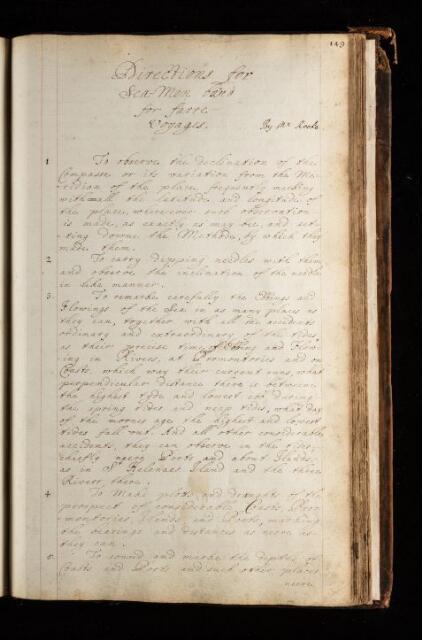 149
Directions for
Sea-Men bound
for farre
Voyages.
By Mr. Rooke
1 To observe the declination of the
Compasse or its variation from the Me-
ridian of the place, frequently marking
withall the latitude and longitude of
the place, wherever such observation
is made, as exactly as may be, and set-
ting downe the Methode, by which they
made them.
2 To carry dipping needles with them,
and observe the inclination of the needle
in like manner.
3 To remarke carefully the Ebbings and
Flowings of the Sea in as many places as
they can, together with all the accidents
ordinary and extraordinary of the tides,
as their precise time of Ebbing and Flow-
ing in Rivers, at Promontories and on
Coasts, which way their current runs, what
perpendicular distance there is between
the highest tyde and lowest ebb during
the spring tides and neep tides, what day
of the moones age the highest and lowest
tides fall out. And all other considerable
accidents, they can observe in the tides,
chiefly neere Ports and about Ilands,
as in St. Helenaes Iland and the three
Rivers there.
4 To Make plotts and draughts of the
prospect of considerable Coasts, Pro-
montories, Ilands and Ports, marking
the bearings and distances as neere as
they can.
5 To sound and marke the depths of
Coasts and Ports and such other places
neere